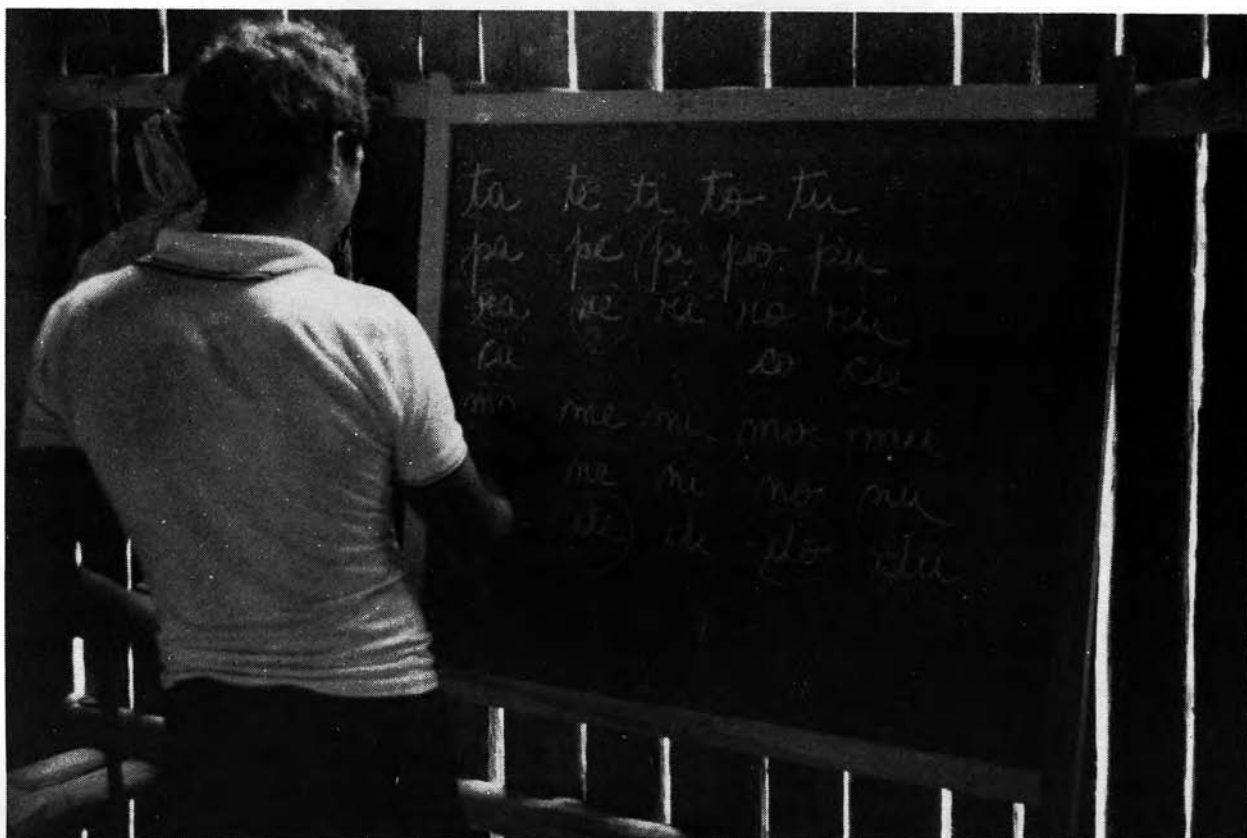 ta te ti to tu
pa pe pi po pu
ra re ri ro ru
ca co cu
ma me mi mo mu
ne ni no nu
de di do du